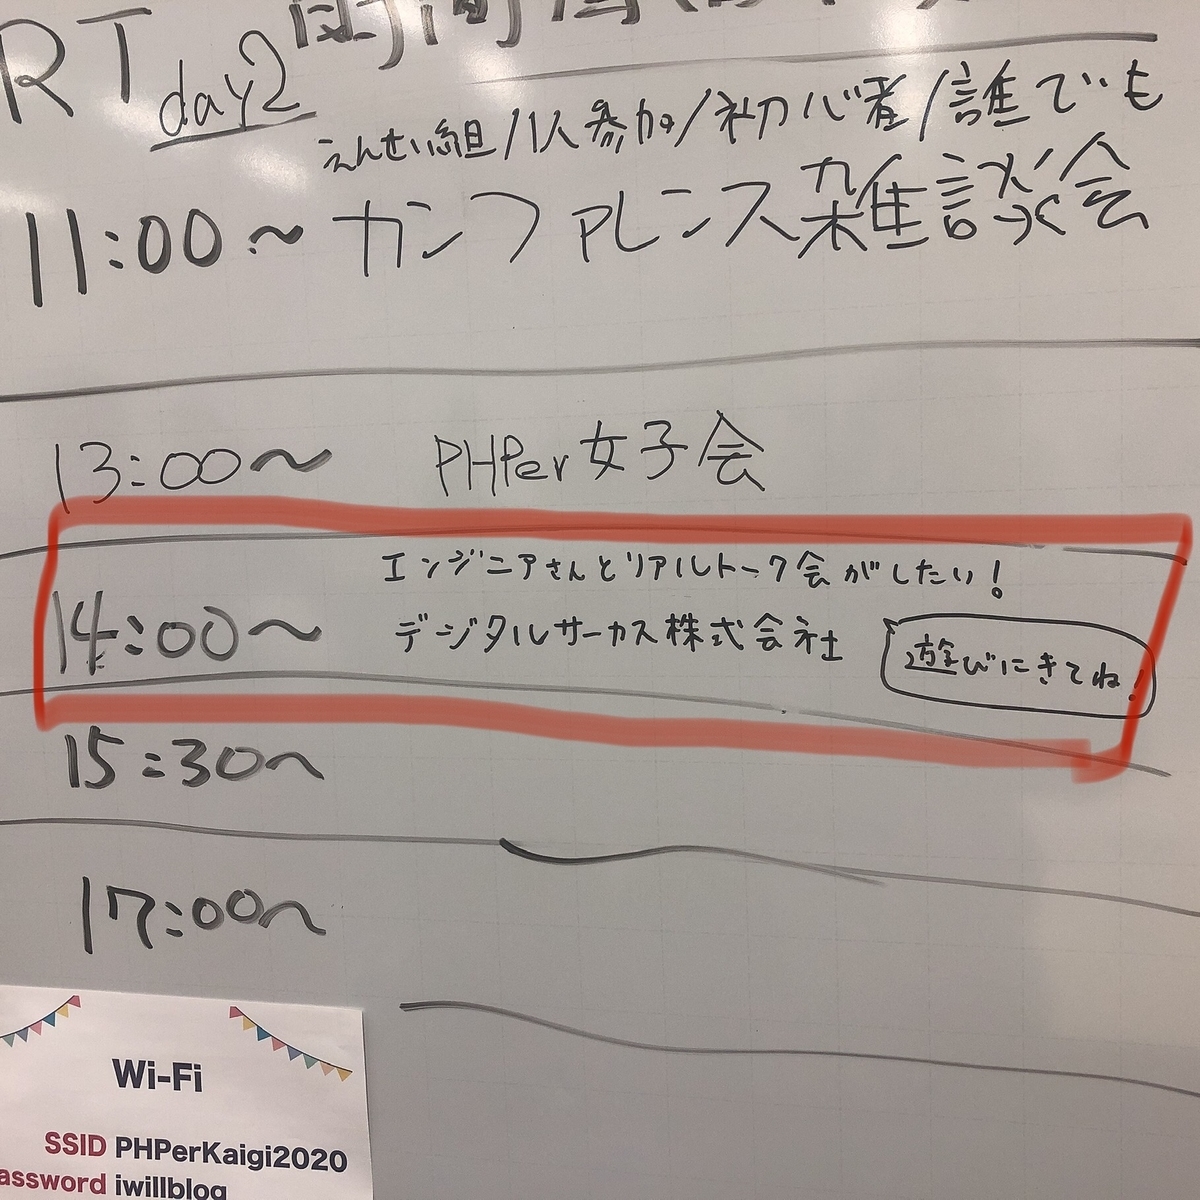 RT day2
えんせい組/1人参加/初心者/誰でも
11:00〜 カンファレンス雑談会
13:00〜 PHPer女子会
エンジニアさんとリアルトーク会がしたい!
14:00〜 デジタルサーカス株式会社
遊びにきてね!
15:30〜
17:00〜
Wi-Fi
SSID PHPerKaigi2020
assword iwillblog